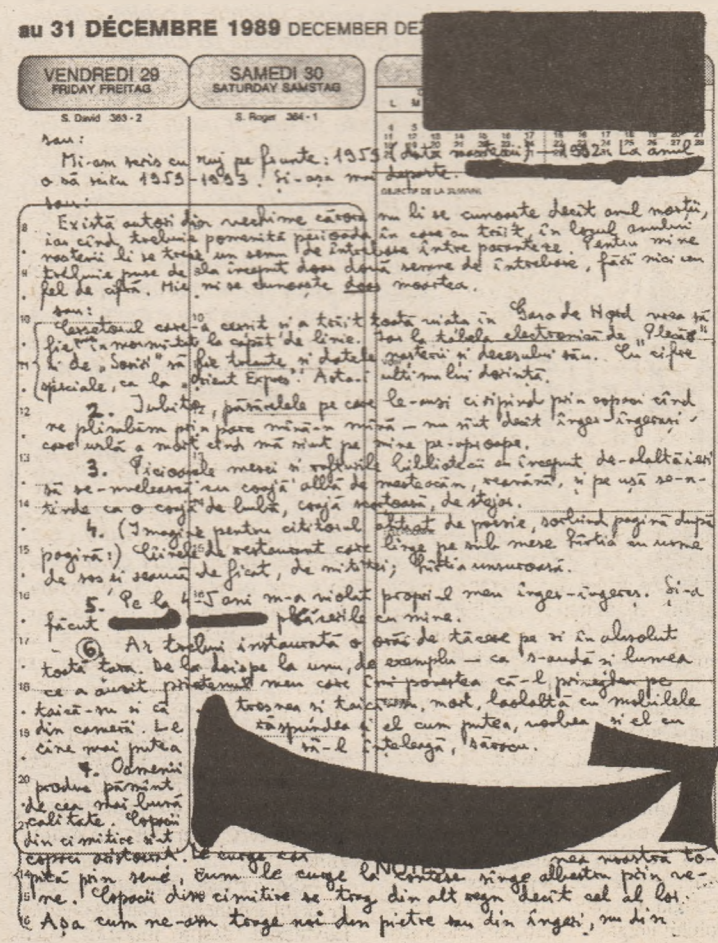 au 31 DÉCEMBRE 1989 DECEMBER DEZ
VENDREDI 29
FRIDAY FREITAG
SAMEDI 30
SATURDAY SAMSTAG
S. David 363 - 2
S. Roger 364 - 1
L M
sau:
Mi-am scris cu ruj pe frunte: 1959 (data nașterii) – 1992. La anul
o să scriu 1959-1993. Și-așa mai departe.
OBJECTIF DE LA SEMAINE
sau:
Există autori din vechime cărora nu li se cunoaște decît anul morții,
iar cînd trebuie pomenită perioada în care au trăit, în locul anului
nașterii li se trece un semn de întrebare între paranteze. Pentru mine
trebuie puse de la început doar două semne de întrebare, fără nici un
fel de cifră. Mie nu mi se cunoaște doar moartea.
sau:
Cerșetorul care-a cerșit și a trăit toată viața în Gara de Nord vrea să
fie înmormîntat la capăt de linie. Iar la tabela electronică de "Plecări"
și de "Sosiri" să fie trecute, și datele nașterii și decesului său. Cu cifre
speciale, ca la "Orient Expres". Asta-i ultima lui dorință.
2. Iubito, păsărelele pe care le-auzi ciripind prin copaci cînd
ne plimbăm prin parc mînă-n mînă – nu sînt decît înger-îngerași
care urlă a mort cînd mă simt pe mine pe-aproape.
3. Picioarele mesei și rafturile bibliotecii au început, de-alaltăieri
să se-nvelească cu coajă albă de mesteacăn, și pe ușă se-n-
tinde ca o coajă de bubă, coajă scorțoasă, de stejar.
4. (Imagine pentru cititorul de poezie, sorbind pagină după
pagină:) Cîinele de restaurant care linge pe sub mese hîrtia cu urme
de sos și de ficat, de mititei; hîrtia unsuroasă.
5. Pe la 4-5 ani m-a violat propriul meu înger-îngeraș. Și-a
făcut plăcerile cu mine.
6. Ar trebui instaurată o oră de tăcere pe zi în absolut
toată țara. De la doișpe la unu, de exemplu – ca s-audă și lumea
ce a auzit prietenul meu care îmi povestea că-l privegheau pe
taică-su și că trosnea și taică-su, mort, laolaltă cu mobilele
din cameră. Le răspundea și el cum putea, vorbea și el cu
cine mai putea să-l înțeleagă, săracu.
7. Oamenii
produc pămînt
de cea mai bună
calitate. Copacii
din cimitire sînt
copaci aristocrați. Le curge nea noastră to-
NOTES
pită prin sevă, cum le curge la contese sînge albastru prin ve-
ne. Copacii din cimitire se trag din alt regn decît cel al lor.
Așa cum ne-am trage noi din pietre sau din îngeri, nu din